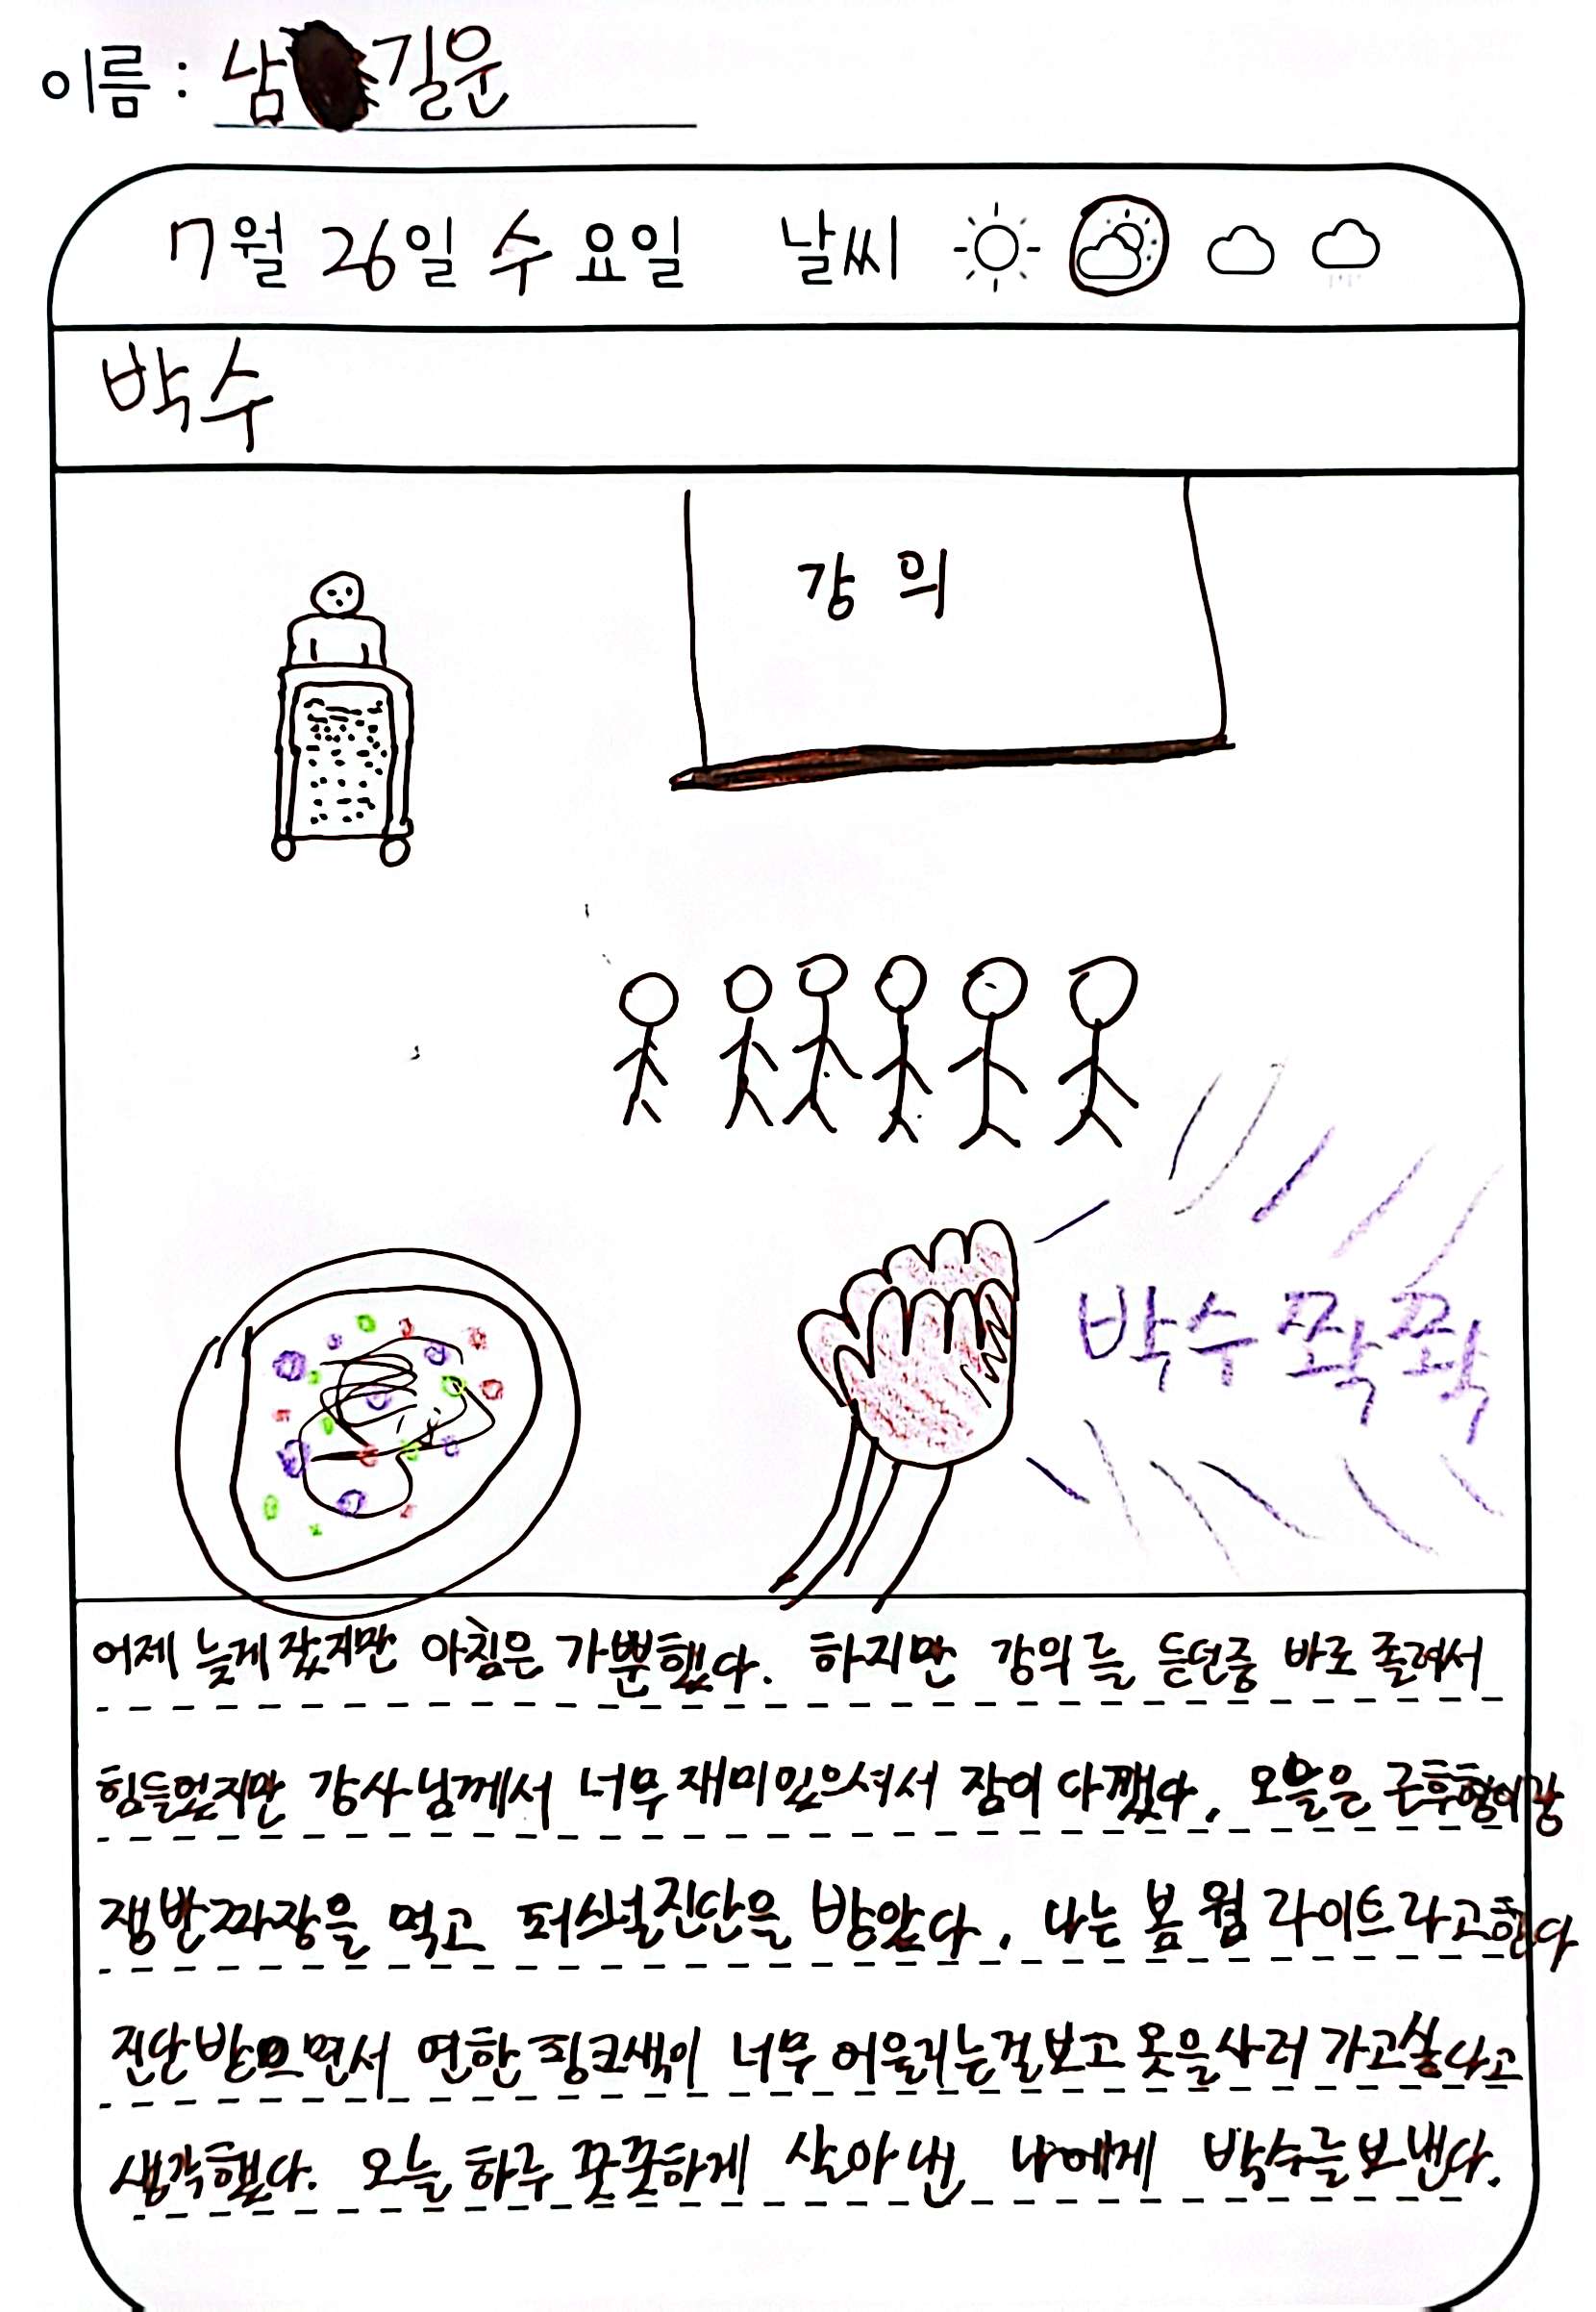 이름 : 남 길운
7월 26일 수요일 날씨
박수
강의
박수 쫙쫙
어제 늦게 잤지만 아침은 가뿐했다. 하지만 강의를 듣던중 바로 졸려서
힘들었지만 강사님께서 너무 재미있으셔서 잠이 다깼다. 오늘은 근후형이랑
쟁반짜장을 먹고 퍼스널진단을 받았다. 나는 봄 웜 라이트라고한다
진단받으면서 연한 핑크색이 너무 어울리는걸보고 옷을사러 가고싶다고
생각했다. 오늘 하루 꿋꿋하게 살아낸 나에게 박수를보낸다.